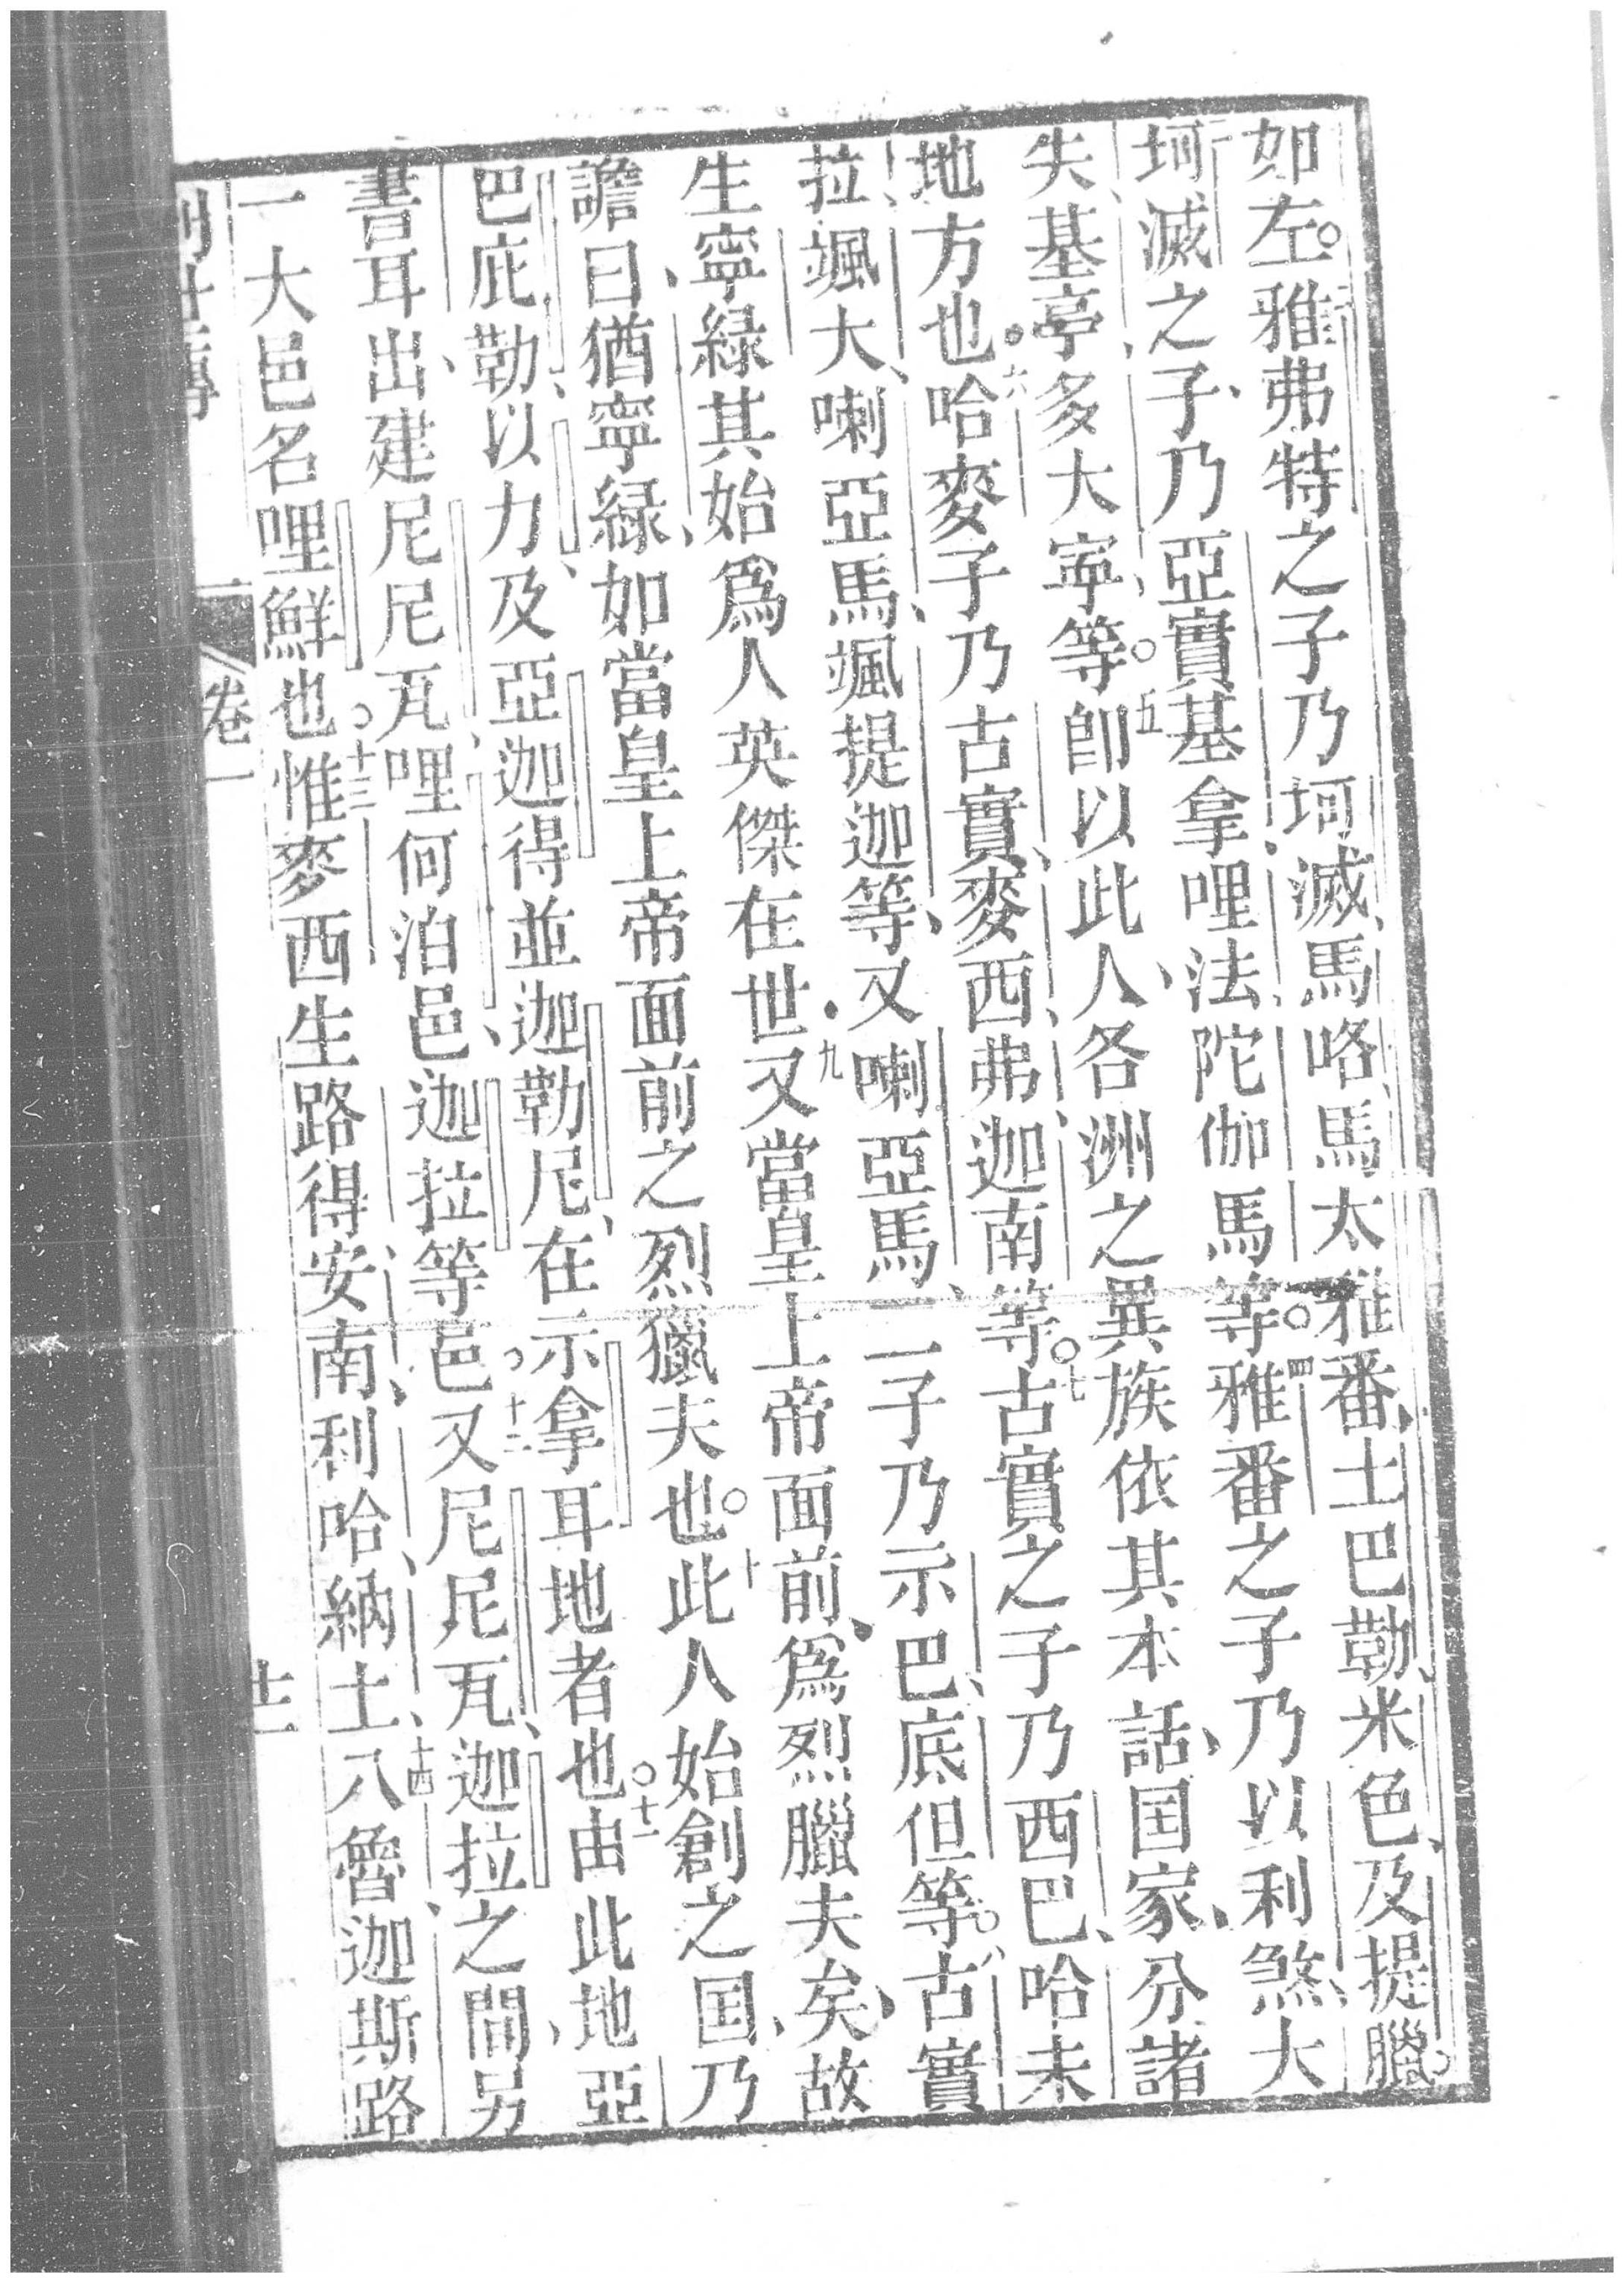 如左。雅弗特之子乃坷滅、馬咯、馬太、雅番、土巴勒、米色、及提臘。
坷滅之子、乃亞實基拿、哩法、陀伽馬等。四雅番之子乃以利煞、大
失、基亭、多大寧等。五卽以此人、各洲之異族依其本話、囯家、分諸
地方也。六哈麥子乃古實、麥西、弗、迦南等。七古實之子乃西巴、哈未
拉、颯大、喇亞馬、颯提迦等、又喇亞馬、二子乃示巴、底但等。八古實
生寧綠、其始爲人英傑在世。九又當皇上帝面前、爲烈臘夫矣、故
諺曰、猶寧綠、如當皇上帝面前之烈獵夫也。十此人始創之囯、乃
巴庇勒、以力、及亞迦得、並迦勒尼、在示拿耳地者也。十一由此地、亞
書耳、出建尼尼瓦、哩何泊邑、迦拉等邑。十二又尼尼瓦、迦拉之間、另
一大邑名哩鮮也。十三惟麥西生路得、安南、利哈、納土、十四八魯、迦斯路
卷一